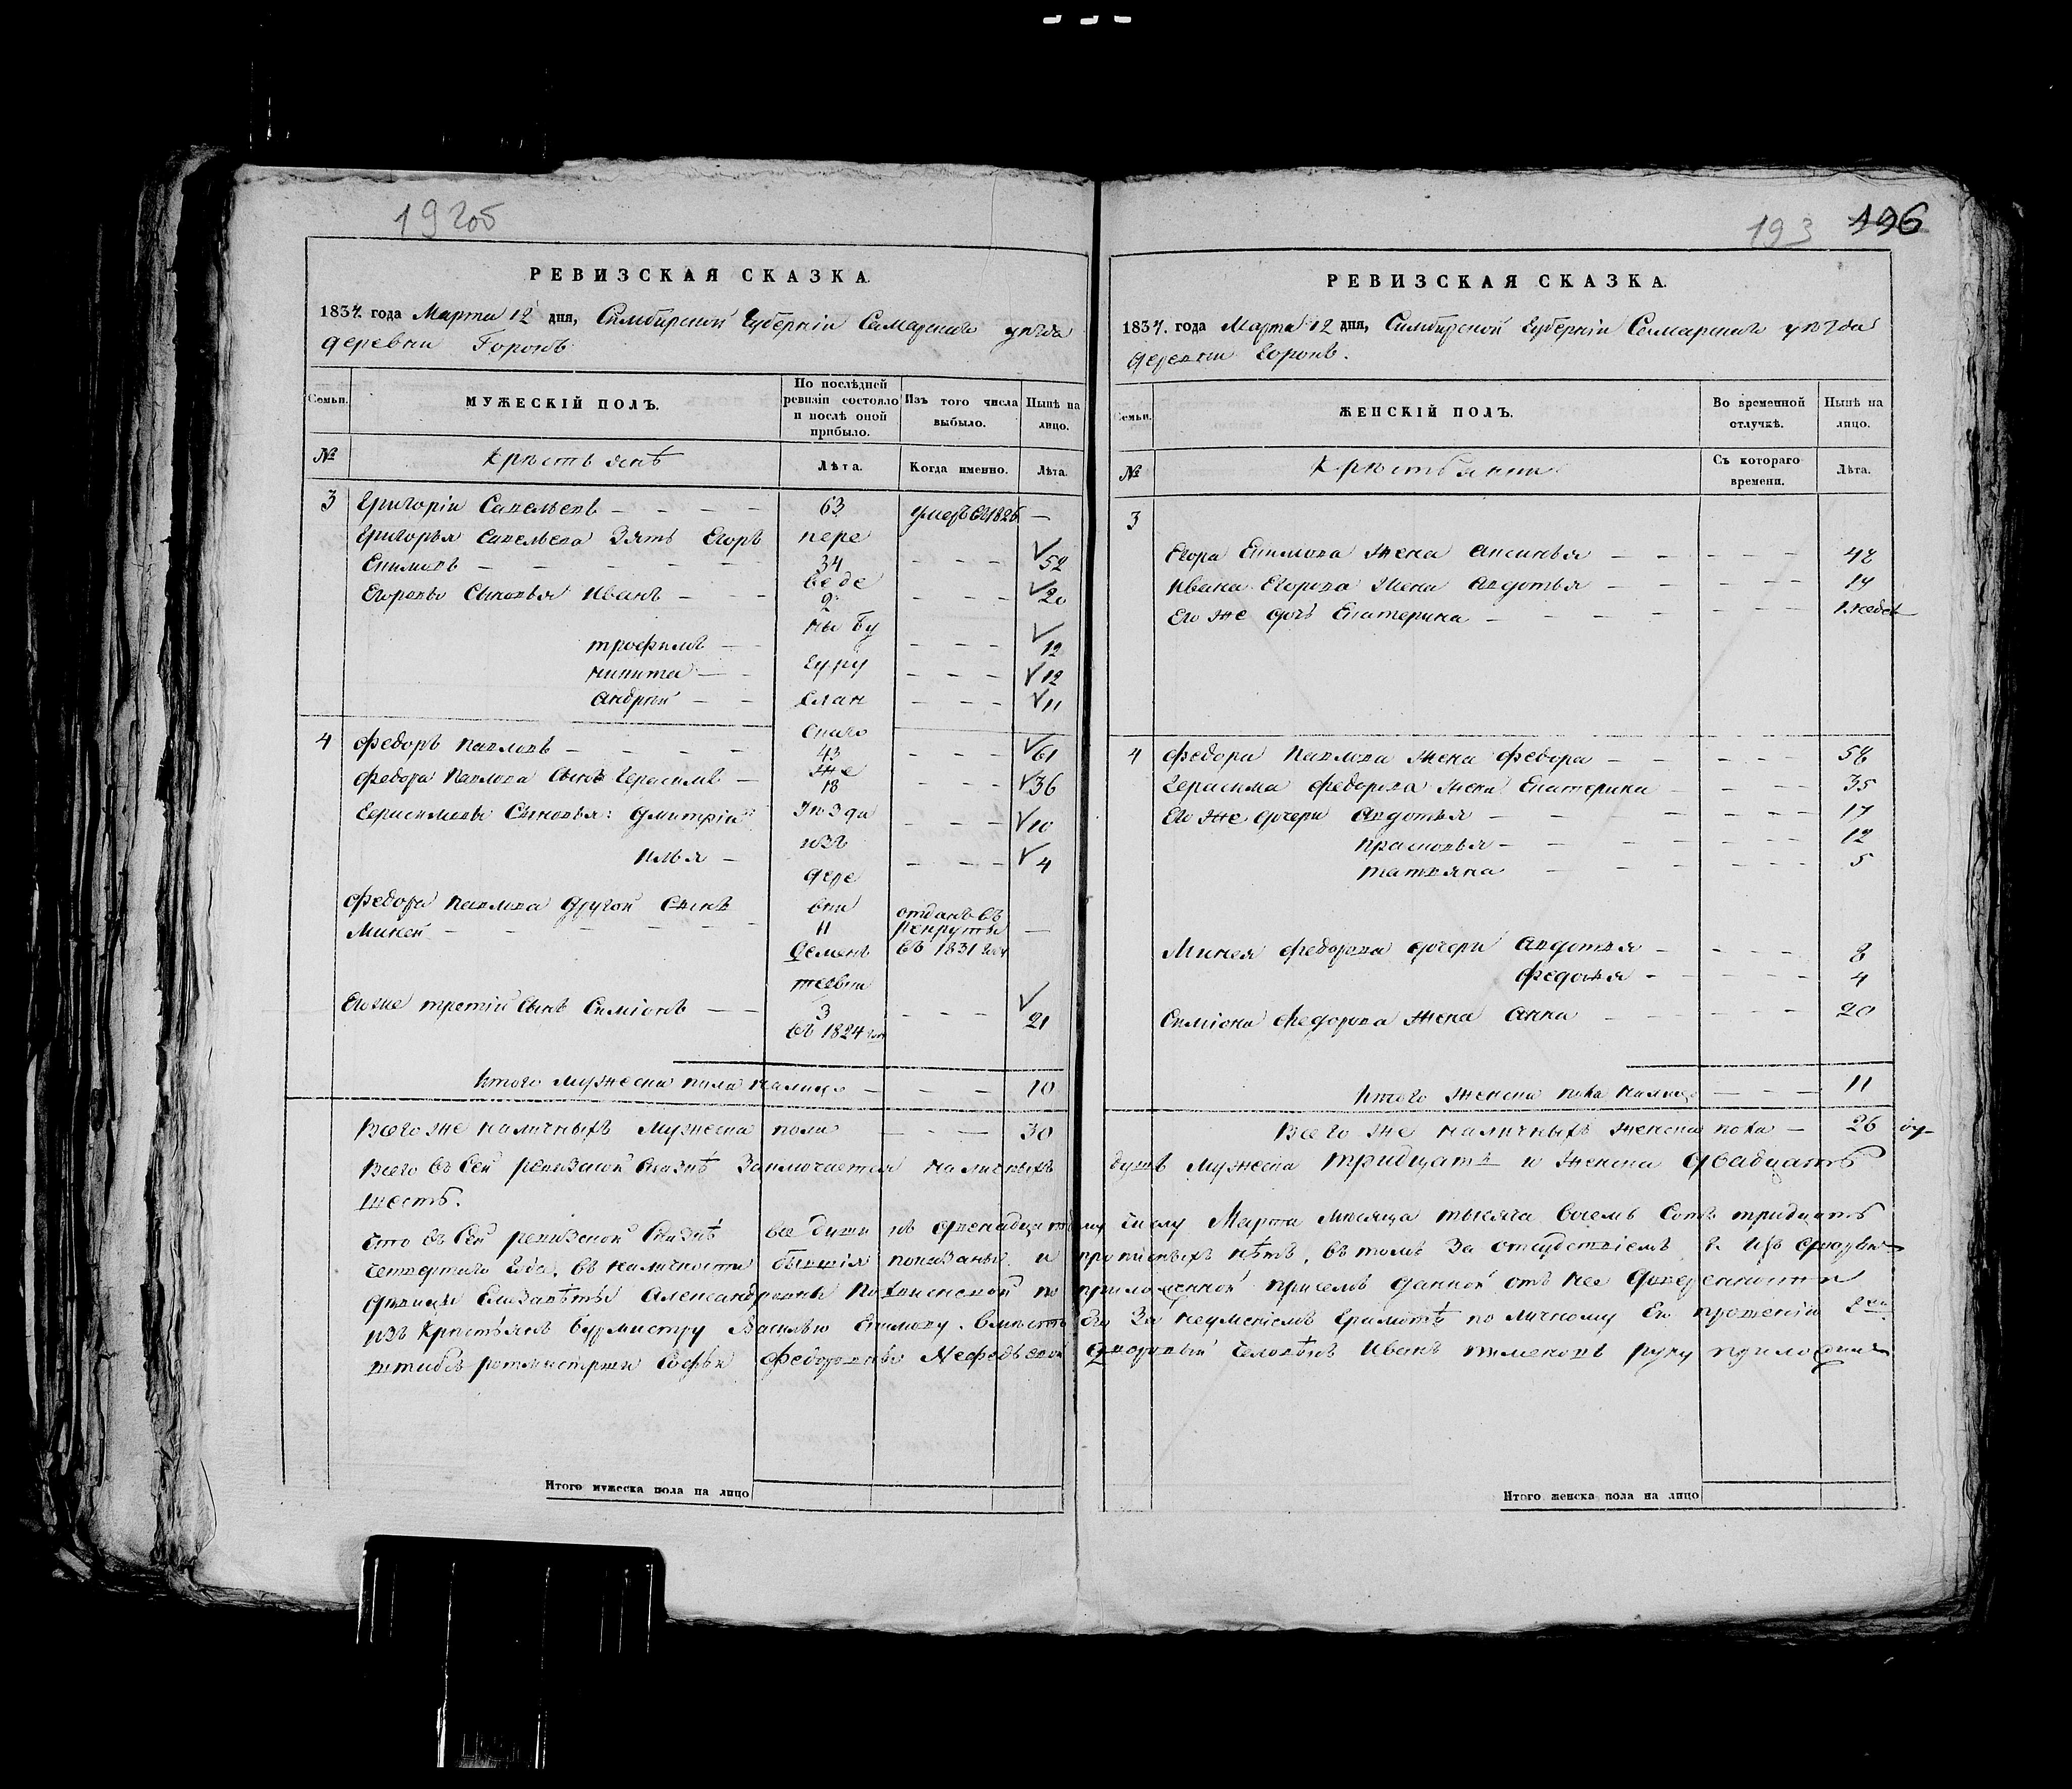 192об
РЕВИЗСКАЯ СКАЗКА.
1834. года Марта 12 дня, Симбирской Губерніи Самарскаго уѣзда
деревни Горокъ
Семьи.
МУЖЕСКІЙ ПОЛЪ.
По послѣдней ревизіи состояло и послѣ оной прибыло.
Изъ того числа выбыло.
Нынѣ на лицо.
№
Крѣстьянѣ
Лѣта.
Когда именно.
Лѣта.
3 Григорій Савельевъ 63 умеръ въ 1826
Григорья Савельева Зять Егоръ пере
Екимовъ 34 52
Егоровы Сыновья Иванъ веде 2 20
ны Бу
трофимъ 12
никита гуру 12
андрей слан 11
скаго
4 Федоръ Павловъ 43 61
Федора Павлова Сынъ Герасимъ же 18 36
Герасимовы Сыновья: Дмитрій уѣзда 10
изъ
илья 4
дере
Федора Павлова другой Сынъ вни отданъ въ
Микей 11 рекруты
Семенъ въ 1831 году
тевки
Егоже третій Сынъ Симіонъ 3 21
въ 1824 году
Итого мужеска пола налицо 10
Всего же наличныхъ мужеска пола 30
Итого мужеска пола на лицо
193 196
РЕВИЗСКАЯ СКАЗКА.
1834. года Марта 12 дня, Симбирской Губерніи Самарскаго уѣзда
деревни Горокъ.
Семьи.
ЖЕНСКІЙ ПОЛЪ.
Во временной отлучкѣ.
Нынѣ на лицо.
№
Крѣстьянки
Съ котораго времени.
Лѣта.
3
Егора Екимова жена аксинья 48
Ивана Егорова жена авдотья 19
Его же дочь Екатерина
4 Федора Павлова жена федора 58
Герасима Федорова жена Екатерина 35
Его же дочери авдотья 17
прасковья 12
татьяна 5
Микея Федорова дочери авдотья 8
федосья 4
Симіона Федорова жена анна 20
Итого женска пола налицо 11
Всего же наличныхъ женска пола 26
Всего въ сей ревизской сказкѣ Заключается наличныхъ душъ мужеска тридцать и женска двадцать
шесть.
Что въ сей ревизской сказкѣ все души къ двенадцатому числу Марта мѣсяца тысяча восемъ сотъ тридцать
четвертаго года. въ наличности бывшія показаны и прописныхъ нѣтъ, въ томъ За отсудствіемъ
девицы Елизаветы Александровны приложенной присемъ данной отъ нее доверенности
изъ Крѣстьянъ бурмистру Василью Екимову. вместо его За неуменіемъ Грамотѣ по личному Его прошенію
штабсъ ротмистерши Софьи Федоровны Нефедьевой дворовый человѣкъ Иванъ руку приложилъ
Итого женска пола на лицо